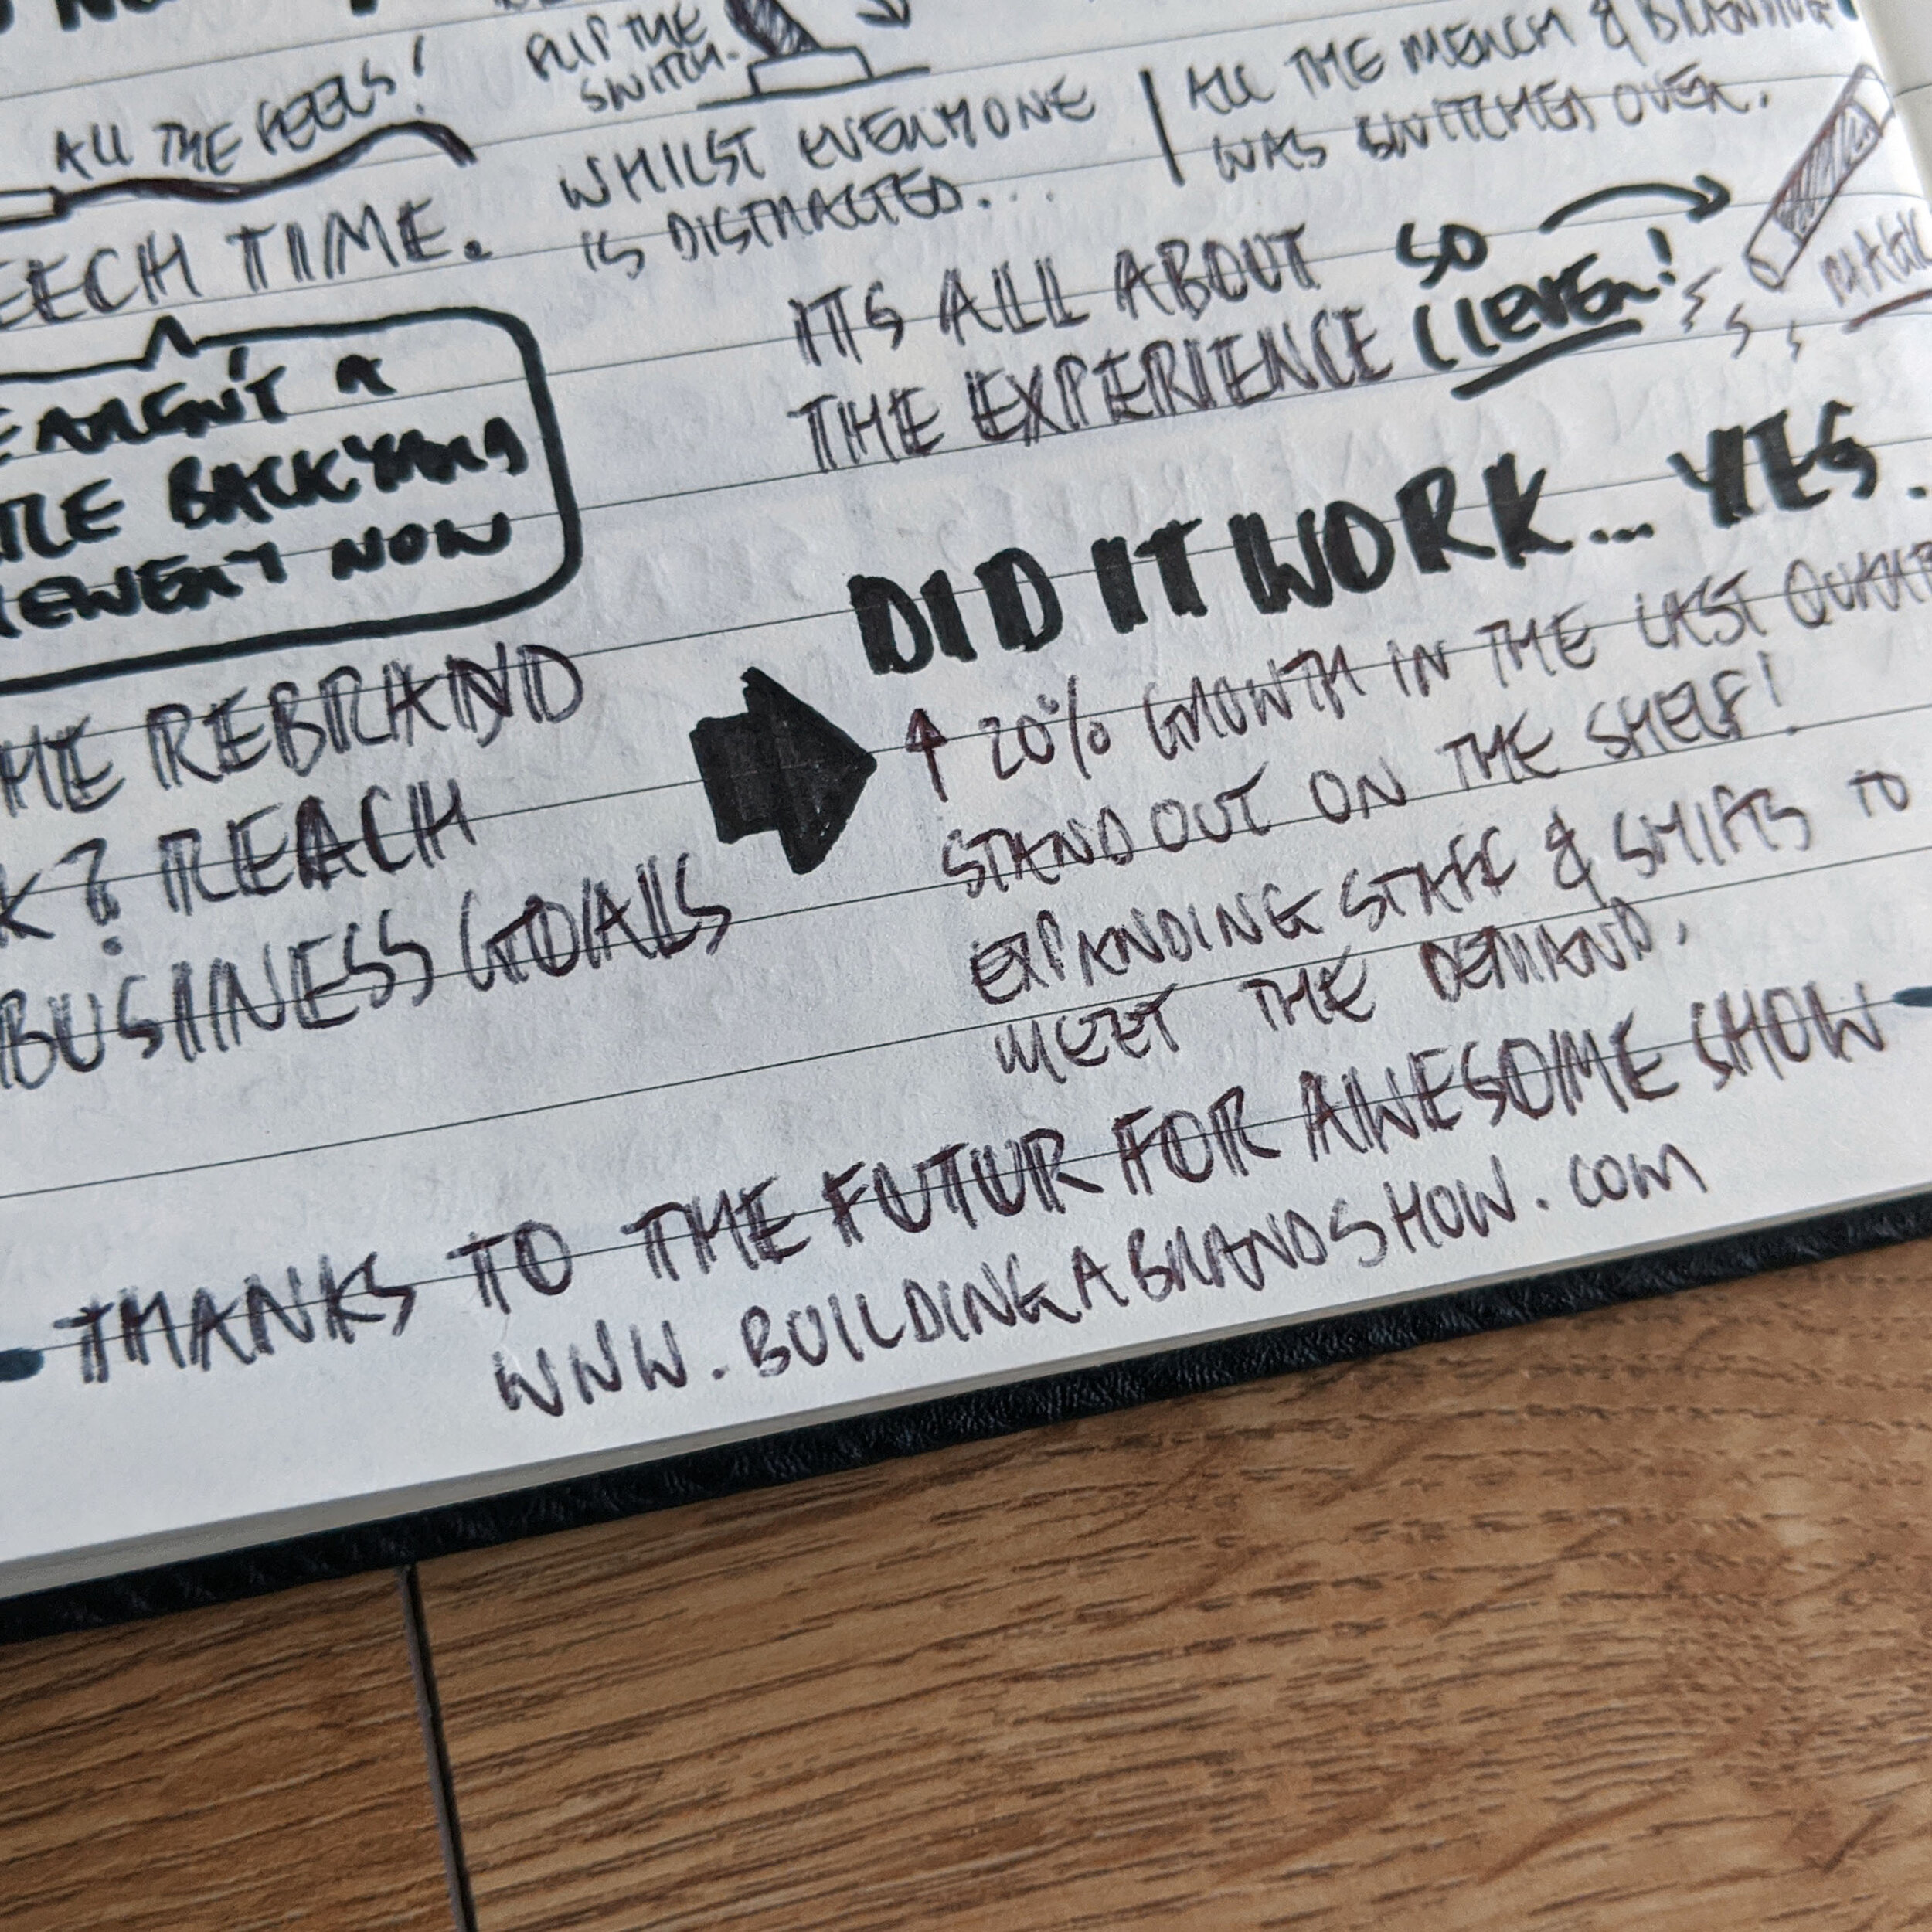 ALL THE FEELS!
EECH TIME.
FLIP THE
SWITCH.
WHILST EVERYONE
IS DISTRACTED...
ALL THE MERCH & BRANDING
WAS SWITCHED OVER.
ITS ALL ABOUT
THE EXPERIENCE
SO
CLEVER!
MAGIC
E AREN'T A
TLE BACKYARD
REWERY NOW
HE REBRAND
K? REACH
BUSINESS GOALS
DID IT WORK... YES.
↑ 20% GROWTH IN THE LAST
STAND OUT ON THE SHELF!
EXPANDING STAFF & SHIFTS TO
MEET THE DEMAND.
THANKS TO THE FUTUR FOR AWESOME SHOW
WWW.BUILDINGABRANDSHOW.COM